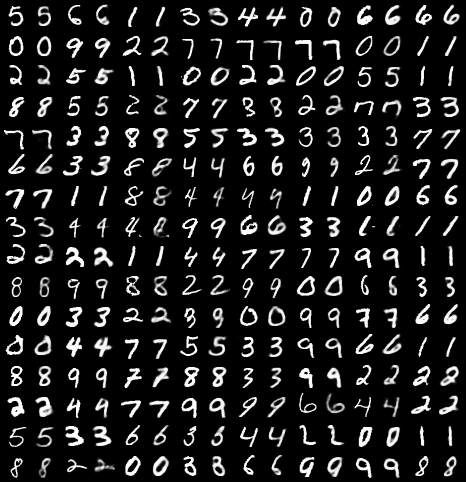 5 5 6 6 1 1 3 3 4 4 0 0 6 6 6 6
0 0 9 9 2 2 7 7 7 7 7 7 0 0 1 1
2 2 5 5 1 1 0 0 2 2 0 0 5 5 1 1
8 8 5 5 2 2 7 7 3 3 2 2 7 7 3 3
7 7 3 3 8 8 5 5 3 3 3 3 3 3 7 7
6 6 3 3 8 8 4 4 6 6 9 9 2 2 7 7
7 7 1 1 8 8 4 4 4 4 1 1 0 0 6 6
3 3 4 4 4 9 9 6 6 3 3 1 1 1 1
2 2 2 2 1 1 4 4 7 7 7 7 9 9 1 1
8 8 9 9 8 8 2 2 9 9 0 0 6 6 3 3
0 0 3 3 2 2 3 9 0 0 9 9 7 7 6 6
0 0 4 4 7 7 5 5 3 3 9 9 6 6 1 1
8 8 9 9 7 7 8 8 3 3 9 9 2 2 2 2
2 2 4 4 7 7 9 9 9 9 6 6 4 4 2 2
5 5 3 3 6 6 3 3 4 4 2 2 0 0 1 1
8 8 2 2 0 0 3 3 6 6 9 9 9 9 8 8